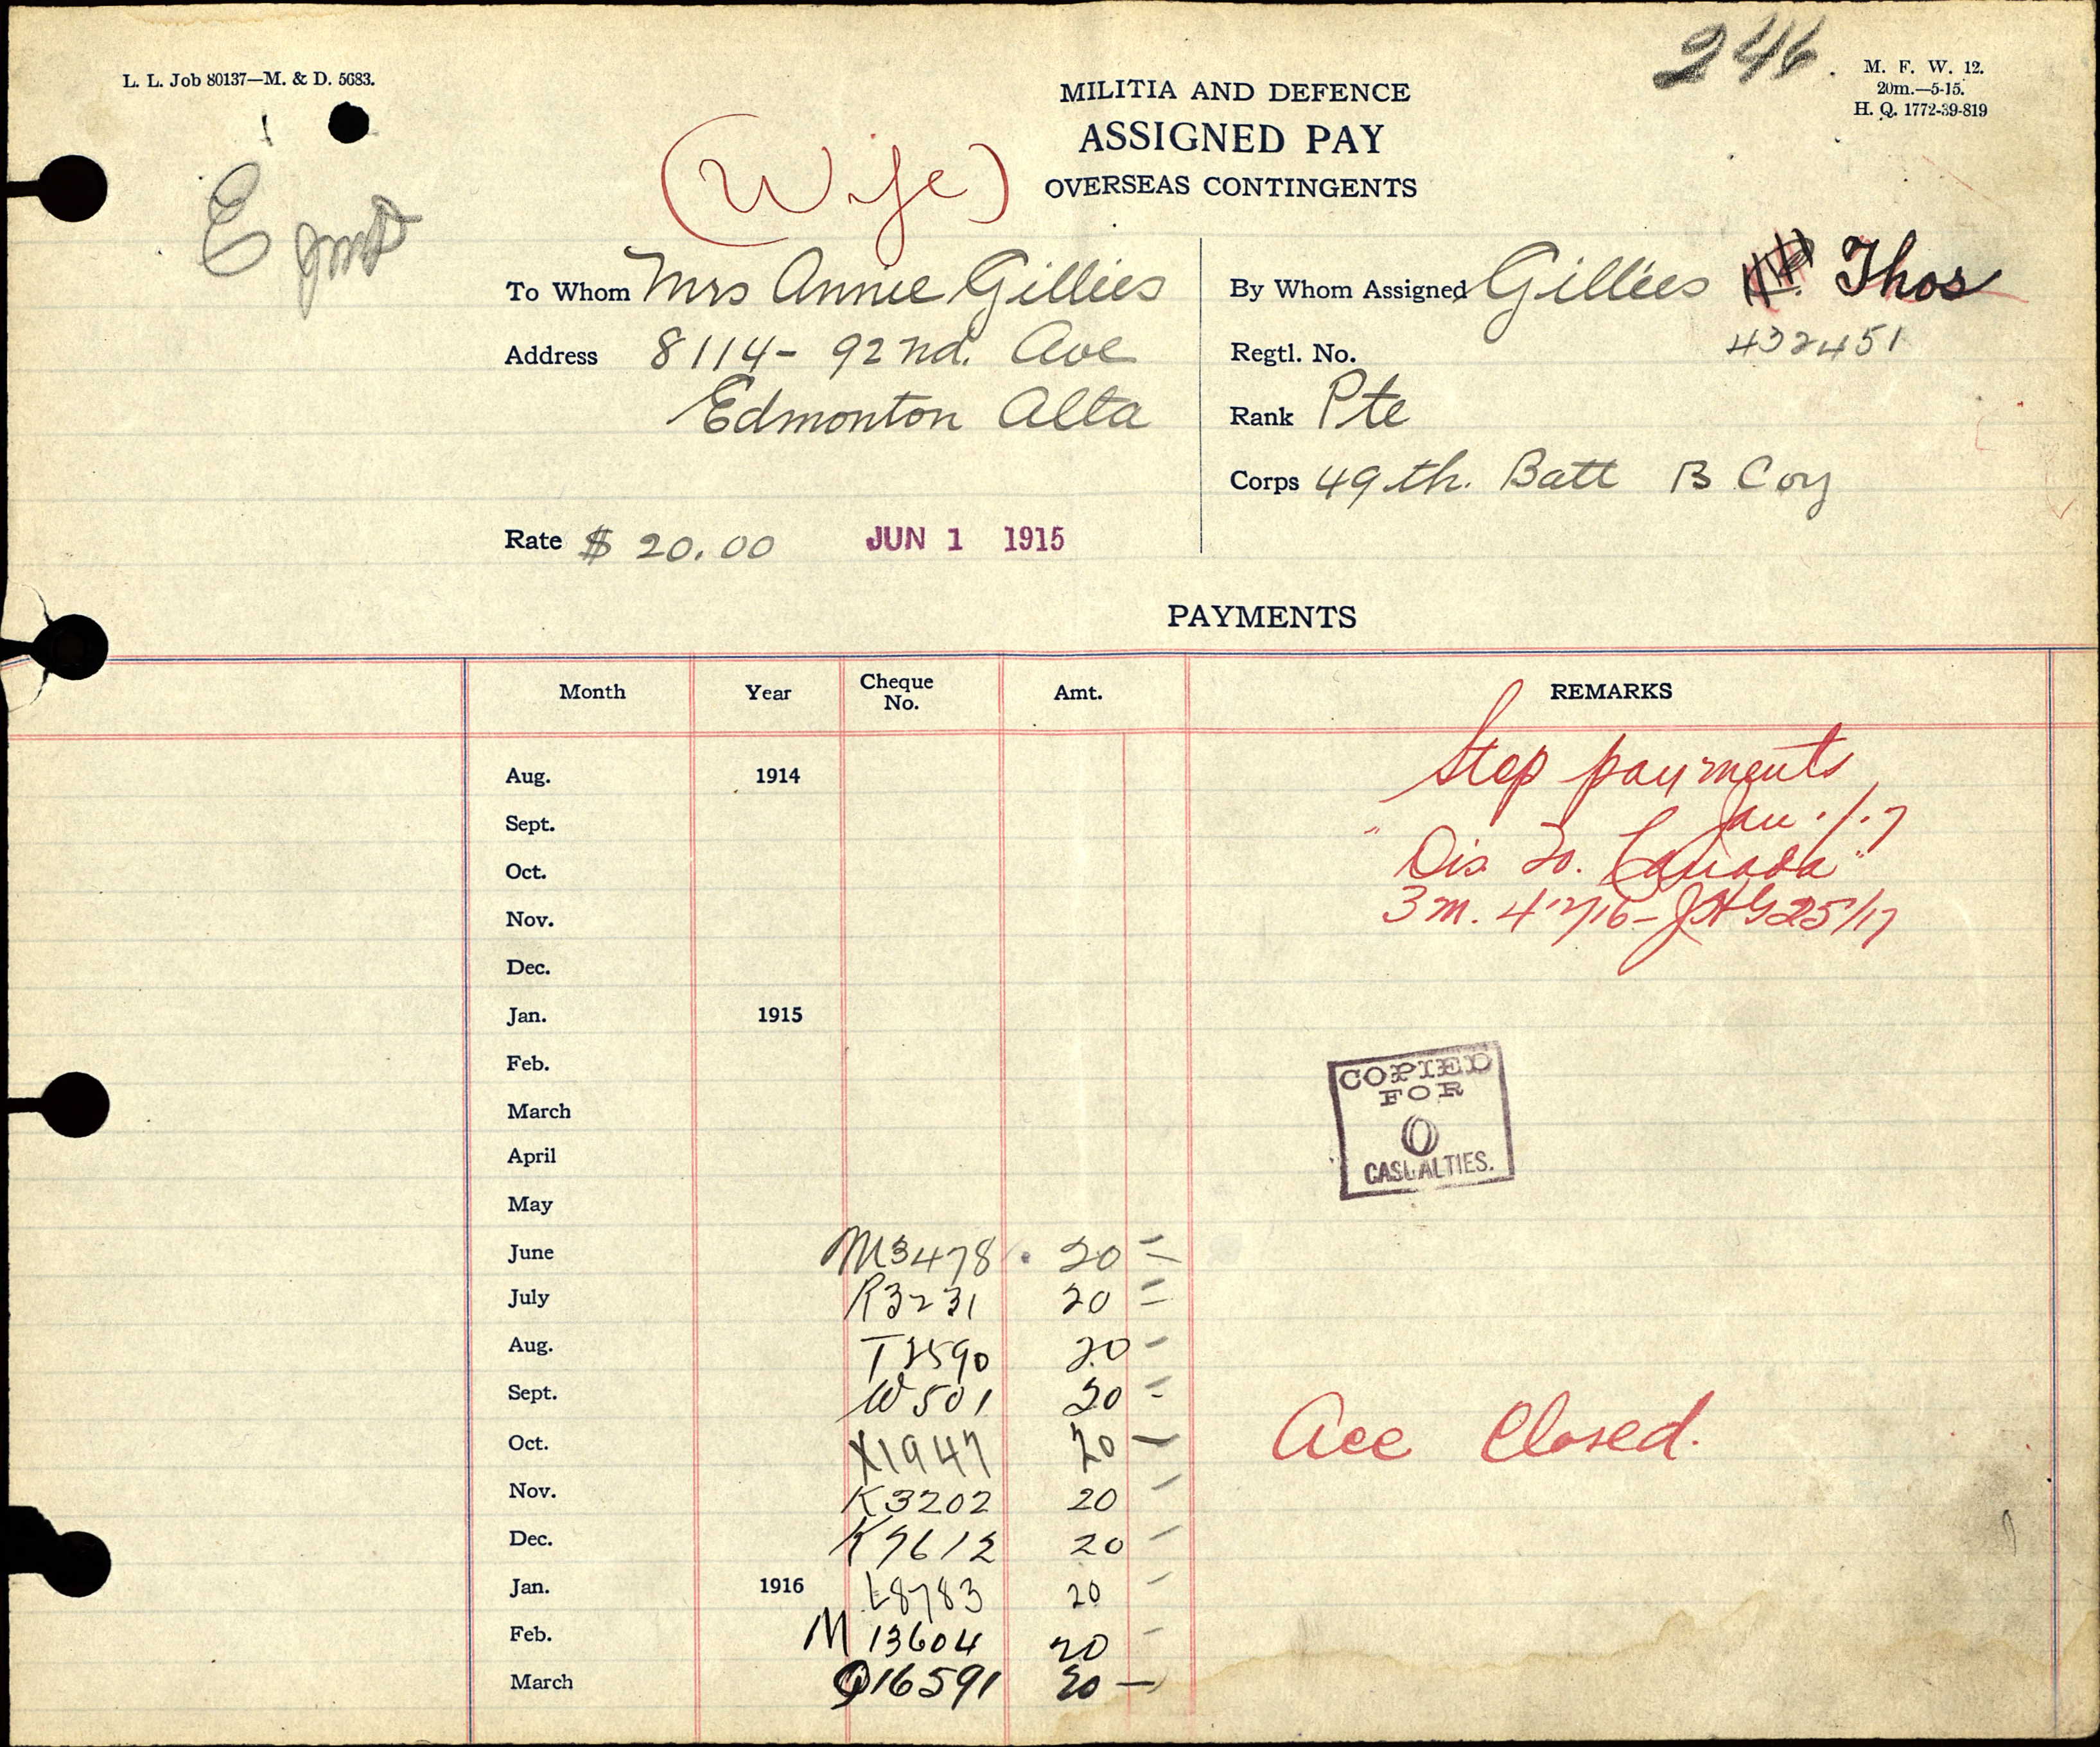 L. L. Job 80137—M. & D. 5683.
246.
M. F. W. 12.
20m.—5-15.
H. Q. 1772-39-819
MILITIA AND DEFENCE
ASSIGNED PAY
OVERSEAS CONTINGENTS
(Wife)
E
To Whom Mrs Annie Gillies
Address 8114- 92nd. Ave
Edmonton Alta
Rate $ 20.00 JUN 1 1915
By Whom Assigned Gillies Thos
Regtl. No. 432451
Rank Pte
Corps 49th. Batt B Coy
PAYMENTS
Month Year Cheque No. Amt. REMARKS
Aug. 1914
Sept.
Oct.
Nov.
Dec.
Jan. 1915
Feb.
March
April
May
June M3478 20 =
July R3231 20 =
Aug. T2590 20 -
Sept. W501 20 =
Oct. X1947 20 —
Nov. K3202 20 -
Dec. K7612 20 -
Jan. 1916 L8783 20 -
Feb. M 13604 20 -
March Q16591 20 —
Stop payments
Jan. 1.7
"Dis to. Canada"
3m.
COPIED
FOR
O
CASUALTIES.
Acc Closed.